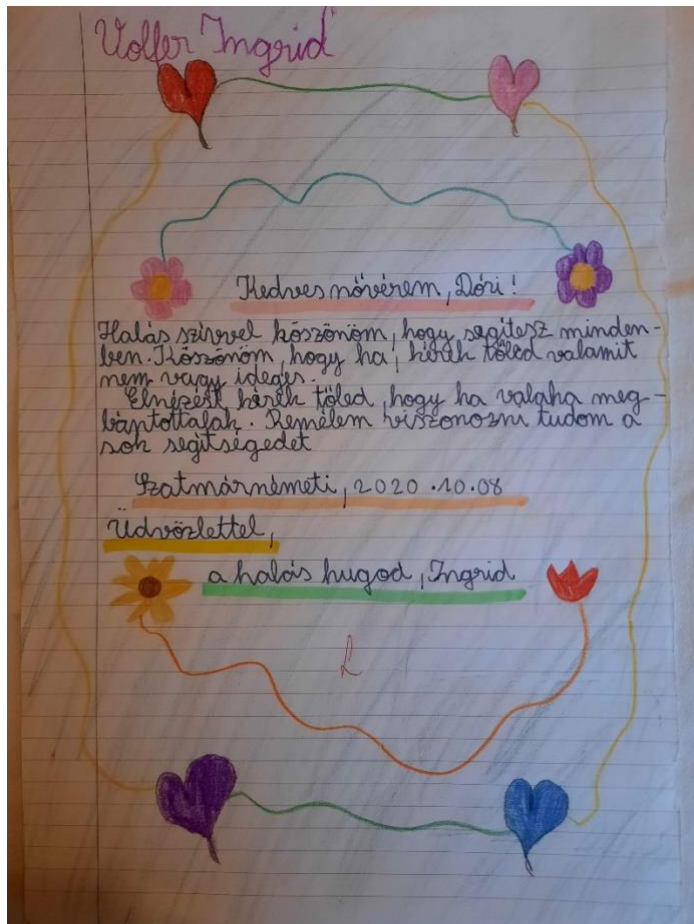 Volfer Ingrid
Kedves nővérem, Dóri!
Halás szívvel köszönöm, hogy segítesz minden-
ben. Köszönöm, hogy ha, kérek tőled valamit
nem vagy ideges.
Elnézést kérek tőled, hogy ha valaha meg-
bántottalak. Remélem viszonozni tudom a
sok segítségedet
Szatmárnémeti, 2020.10.08
Üdvözlettel,
a halás hugod, Ingrid